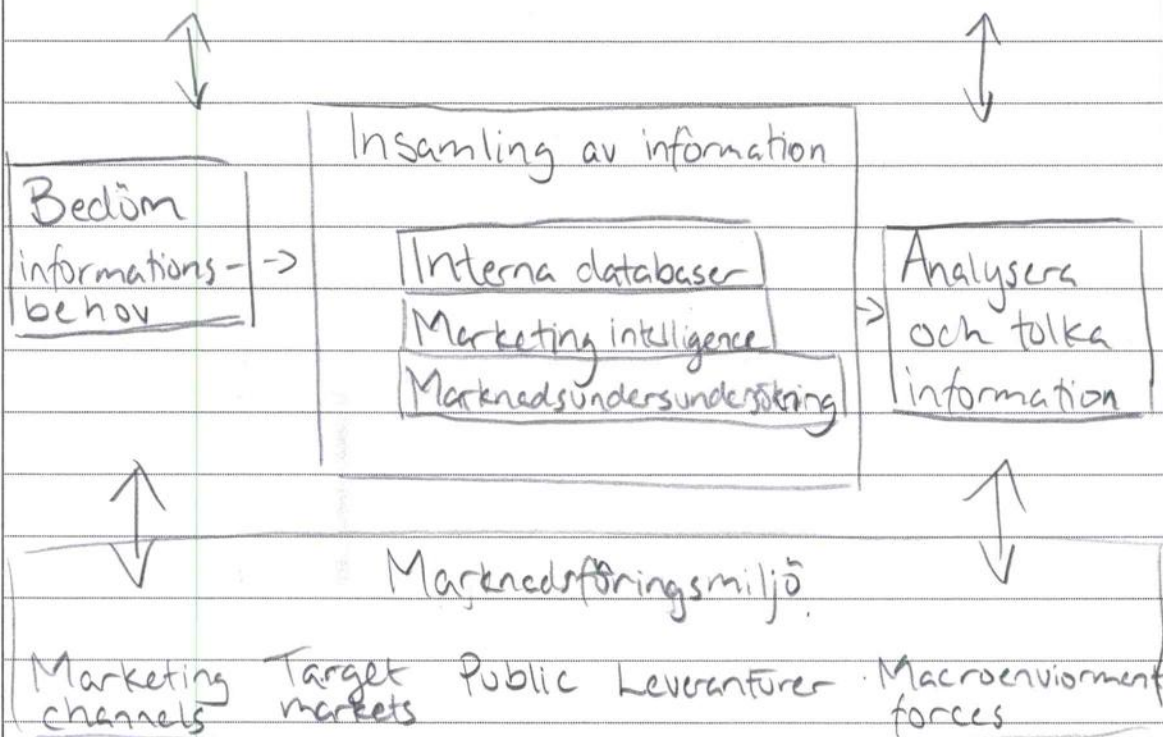 Insamling av information
Bedöm
informations-
behov
Interna databaser
Marketing intelligence
Marknadsundersundersökning
Analysera
och tolka
information
Marknadsföringsmiljö
Marketing
channels
Target
markets
Public
Leverantörer
Macroenviorment
forces